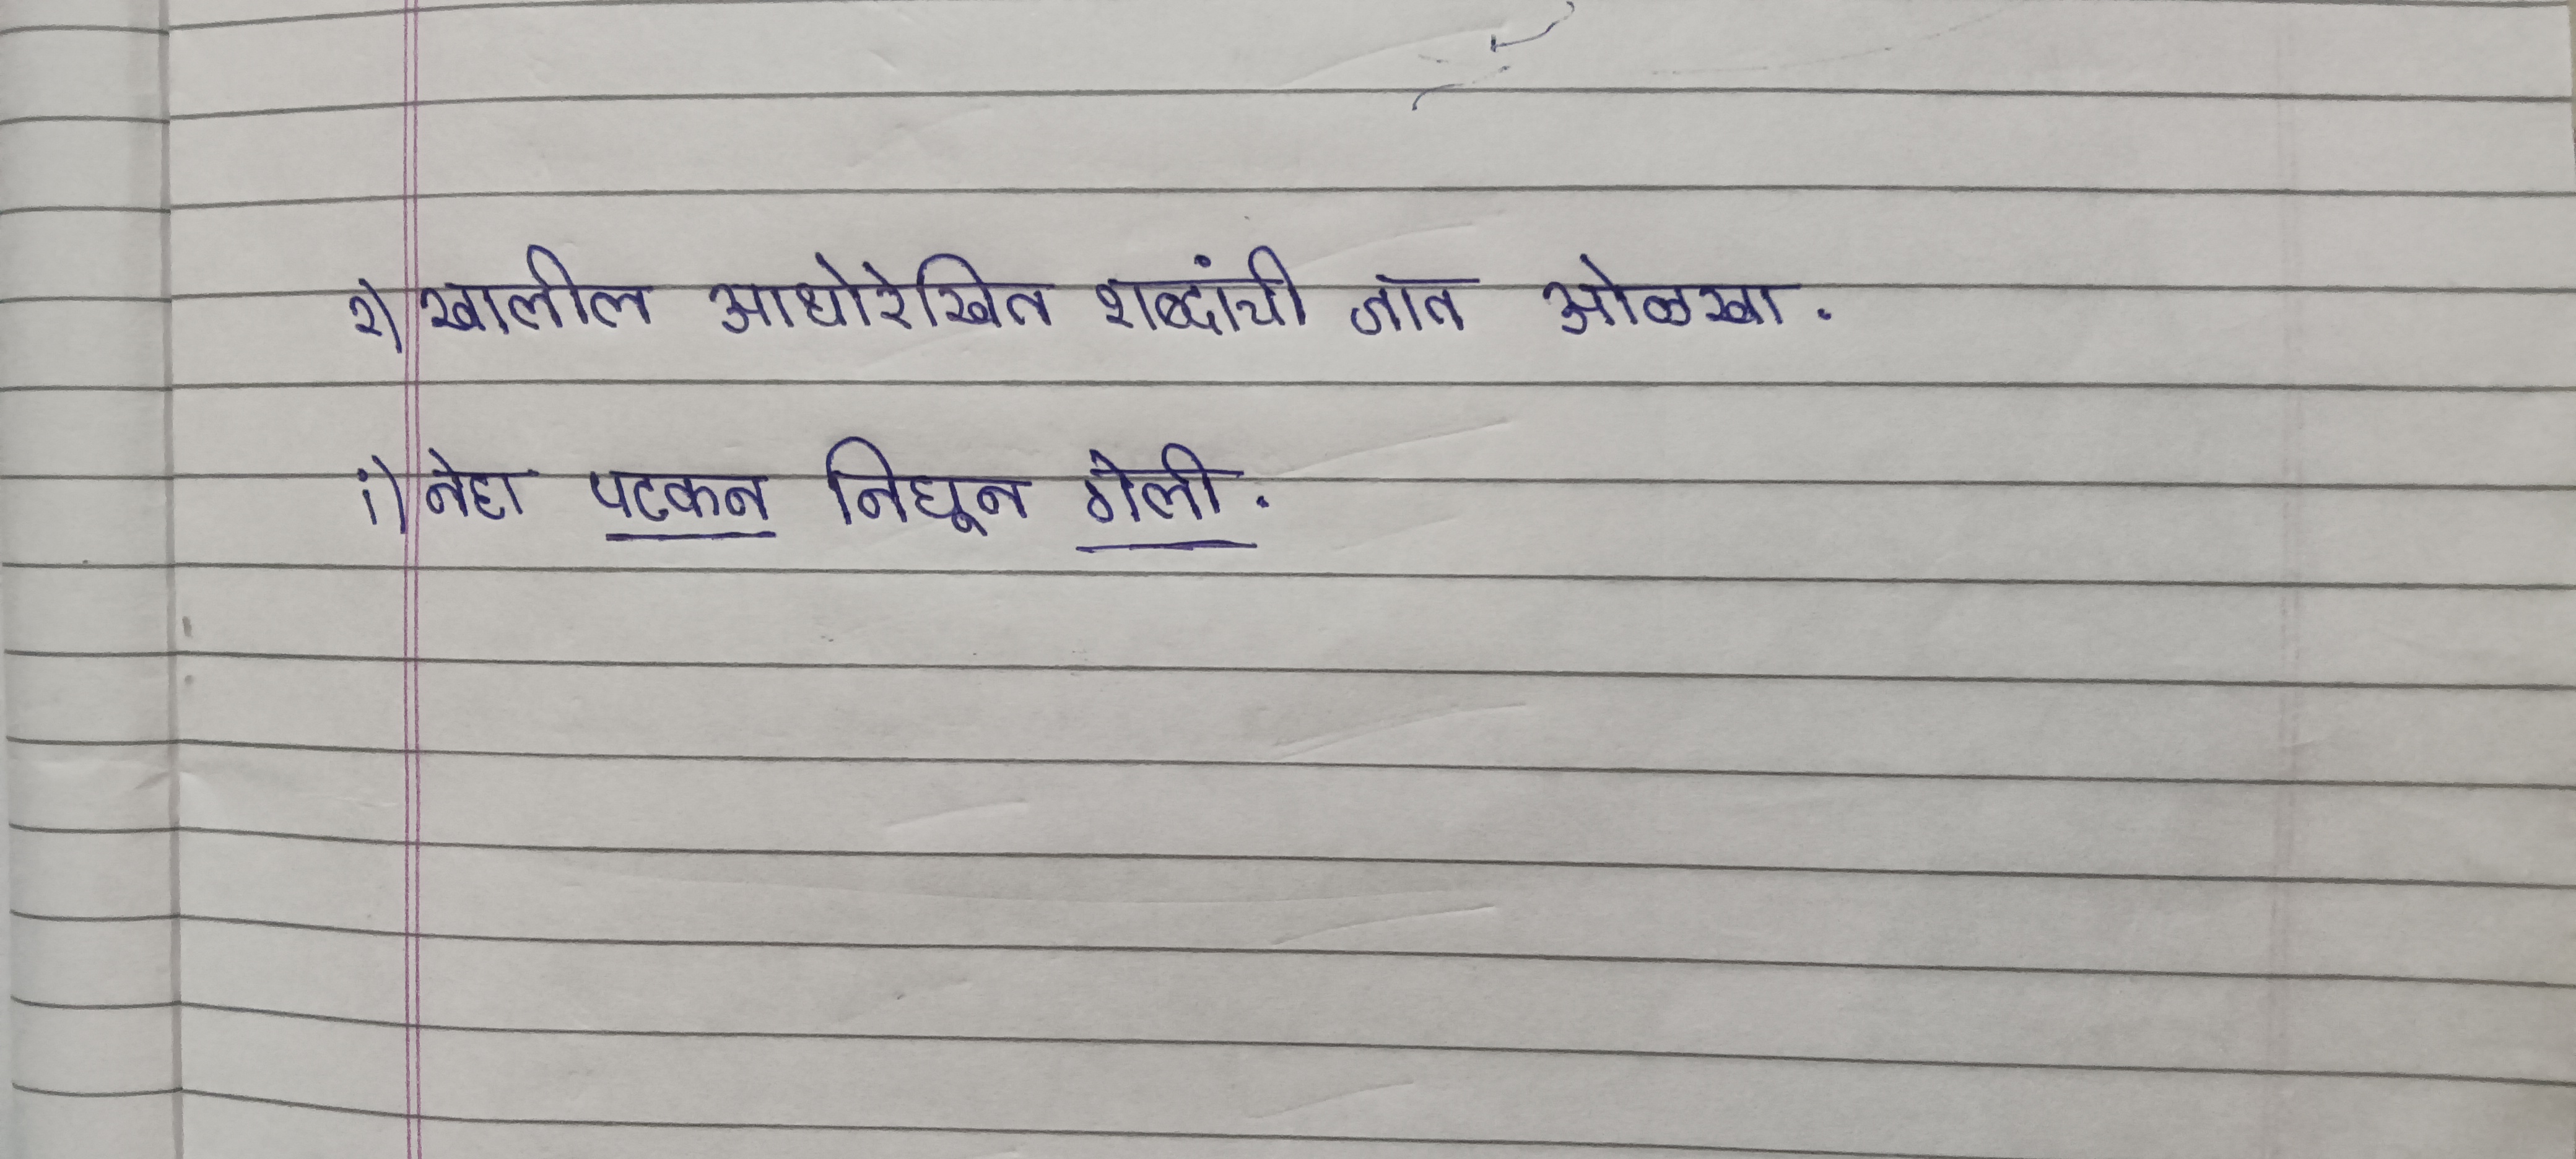 २) खालील आधोरेखित शब्दांची जात ओळखा.
i) नेहा पटकन निघून गेली.